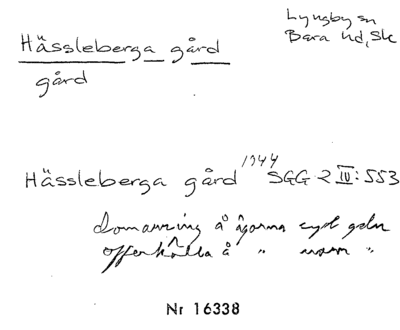 Lyngby sn
Bara hd, Sk
Hässleberga gård
gård
Hässleberga gård 1944 SGG 2 IV: 553
domarring å ägorna
offerkälla å " "
Nr 16338